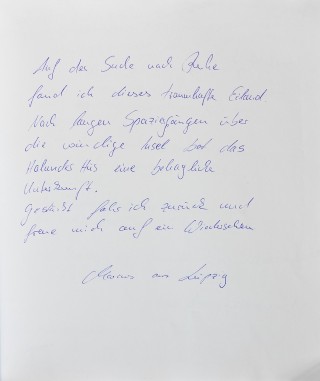 Auf der Suche nach Ruhe
fand ich dieses traumhafte Eiland
Nach langen Spaziergängen über
die windige Insel bot das
eine behagliche
Unterkunft.
Gestärkt fahr ich zurück und
freue mich auf ein Wiedersehen
Marcus aus Leipzig